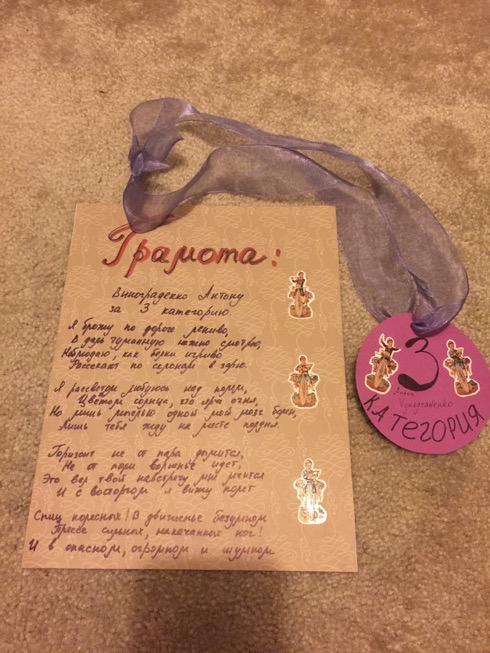 Грамота:
Виноградекко Антону
за 3 категорию.
Я брожу по дороге лениво,
В даль туманную нежно смотрю,
Наблюдаю, как белки игриво
Рассекают по склонам в зарю.
Я рассветом любуюсь над морем,
Цветом солнца, его ярче огня,
Но лишь мыслью одной мой мозг болен,
Лишь тебя жду на месте полдня.
Горизонт не от пара дымится,
Не от пара воршнье идет,
Это вел твой навстречу мне мчится
И с восторгом я вижу полет
Спиц колесных! В движенье безумном
Прессе сильном, накаченных ног!
И в опасном, огромном и шумном
3
Антон
Виноградненко
КАТЕГОРИЯ